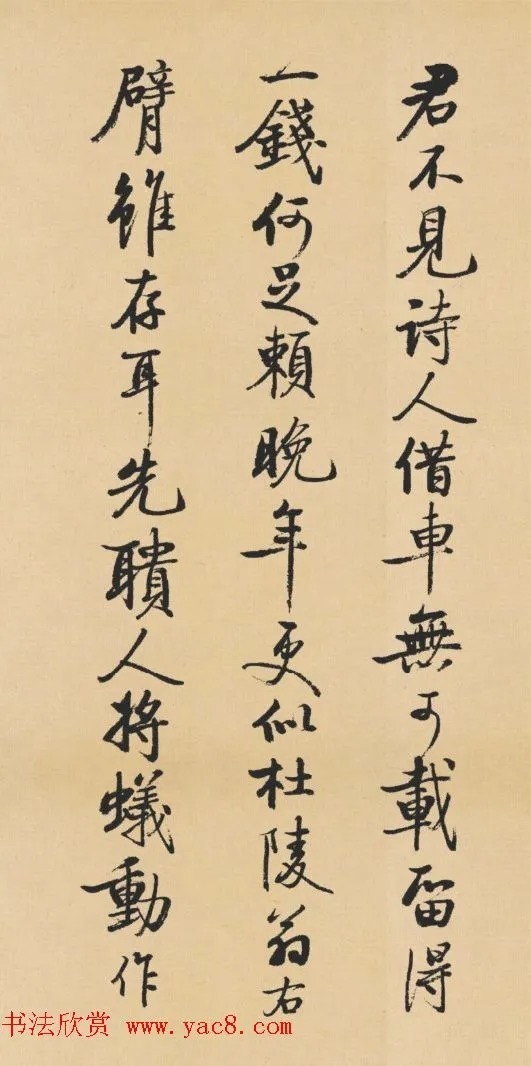 君不見詩人借車無可載留得
一錢何足賴晚年更似杜陵翁右
臂雖存耳先聵人將蟻動作
书法欣赏 www.yac8.com